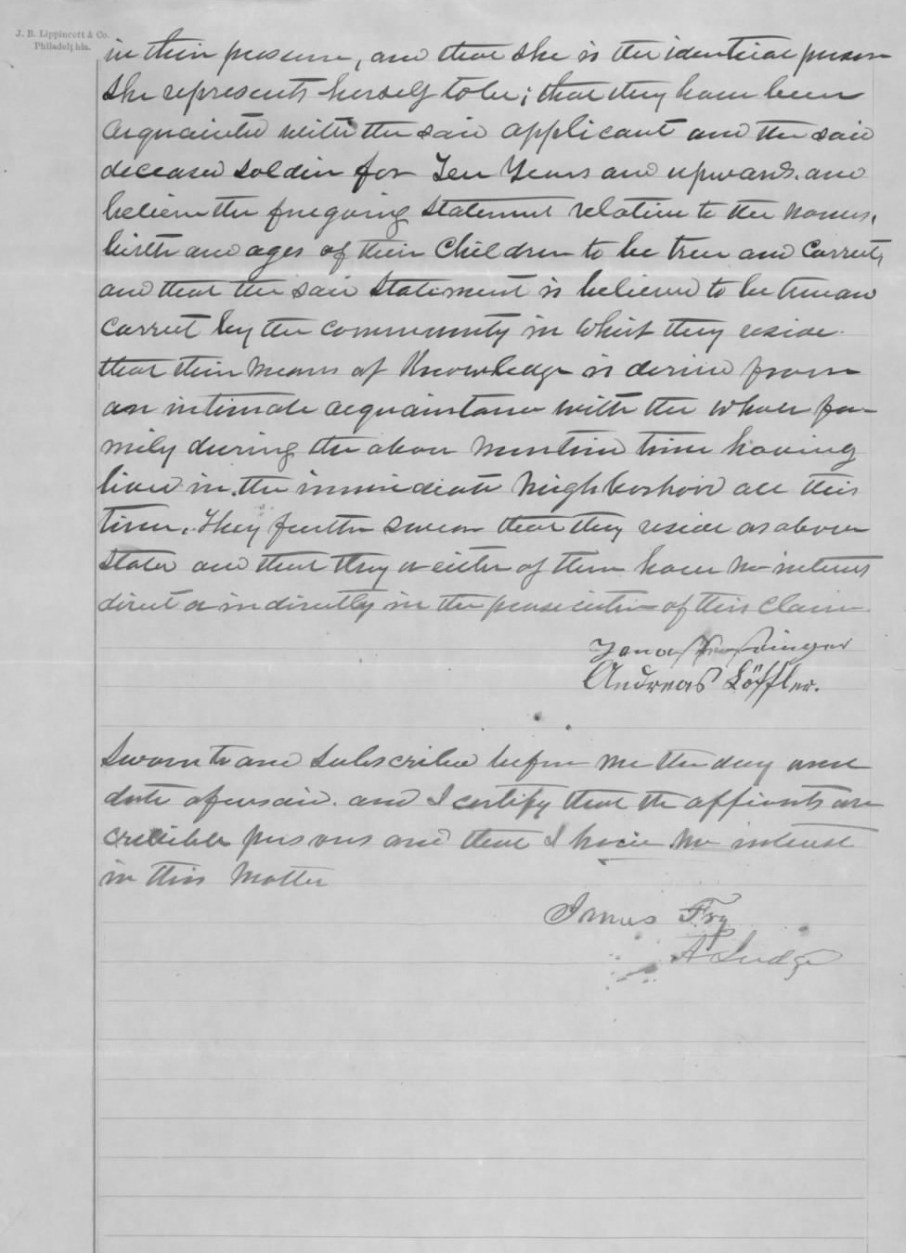 J. B. Lippincott & Co.
Philadelphia.
in their presence, and that she is the identical person
she represents herself to be; that they have been
acquainted with the said applicant and the said
deceased soldier for Ten Years and upwards. and
believe the foregoing statement relative to the names,
birth and ages of their Children to be true and Correct,
and that the said Statement is believed to be true and
correct by the community in which they reside.
that their means of Knowledge is derived from
an intimate acquaintance with the whole fa-
mily during the above mention time having
lived in the immediate Neighborhood all this
time. They further swear that they reside as above
stated and that they or either of them have no interest
direct or indirectly in the prosecution of this Claim
Andreas Löffler.
Sworn to and Subscribed before me the day and
date aforesaid. and I certify that the affiants are
credible persons and that I have no interest
in this Matter
Fry
A Judge